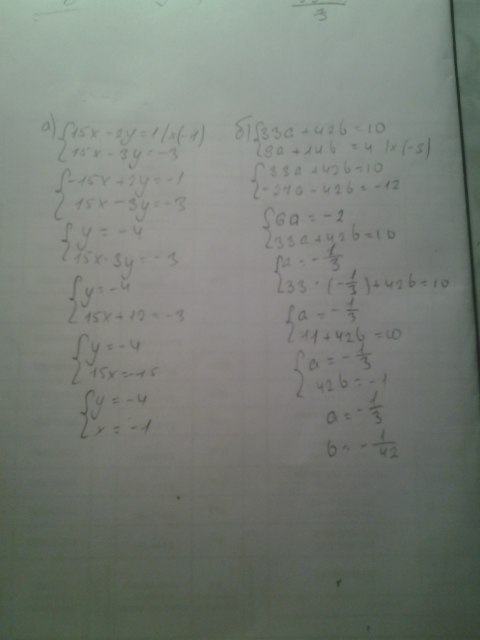 3
а) { 15x - 2y = 1 | x(-1)
15x - 3y = -3
{ -15x + 2y = -1
15x - 3y = -3
{ y = -4
15x - 3y = -3
{ y = -4
15x + 12 = -3
{ y = -4
15x = -15
{ y = -4
x = -1
б) { 33a + 42b = 10
9a + 14b = 4 | x(-3)
{ 33a + 42b = 10
-27a - 42b = -12
{ 6a = -2
33a + 42b = 10
{ a = -1/3
33 · (-1/3) + 42b = 10
{ a = -1/3
11 + 42b = 10
{ a = -1/3
42b = -1
a = -1/3
b = -1/42